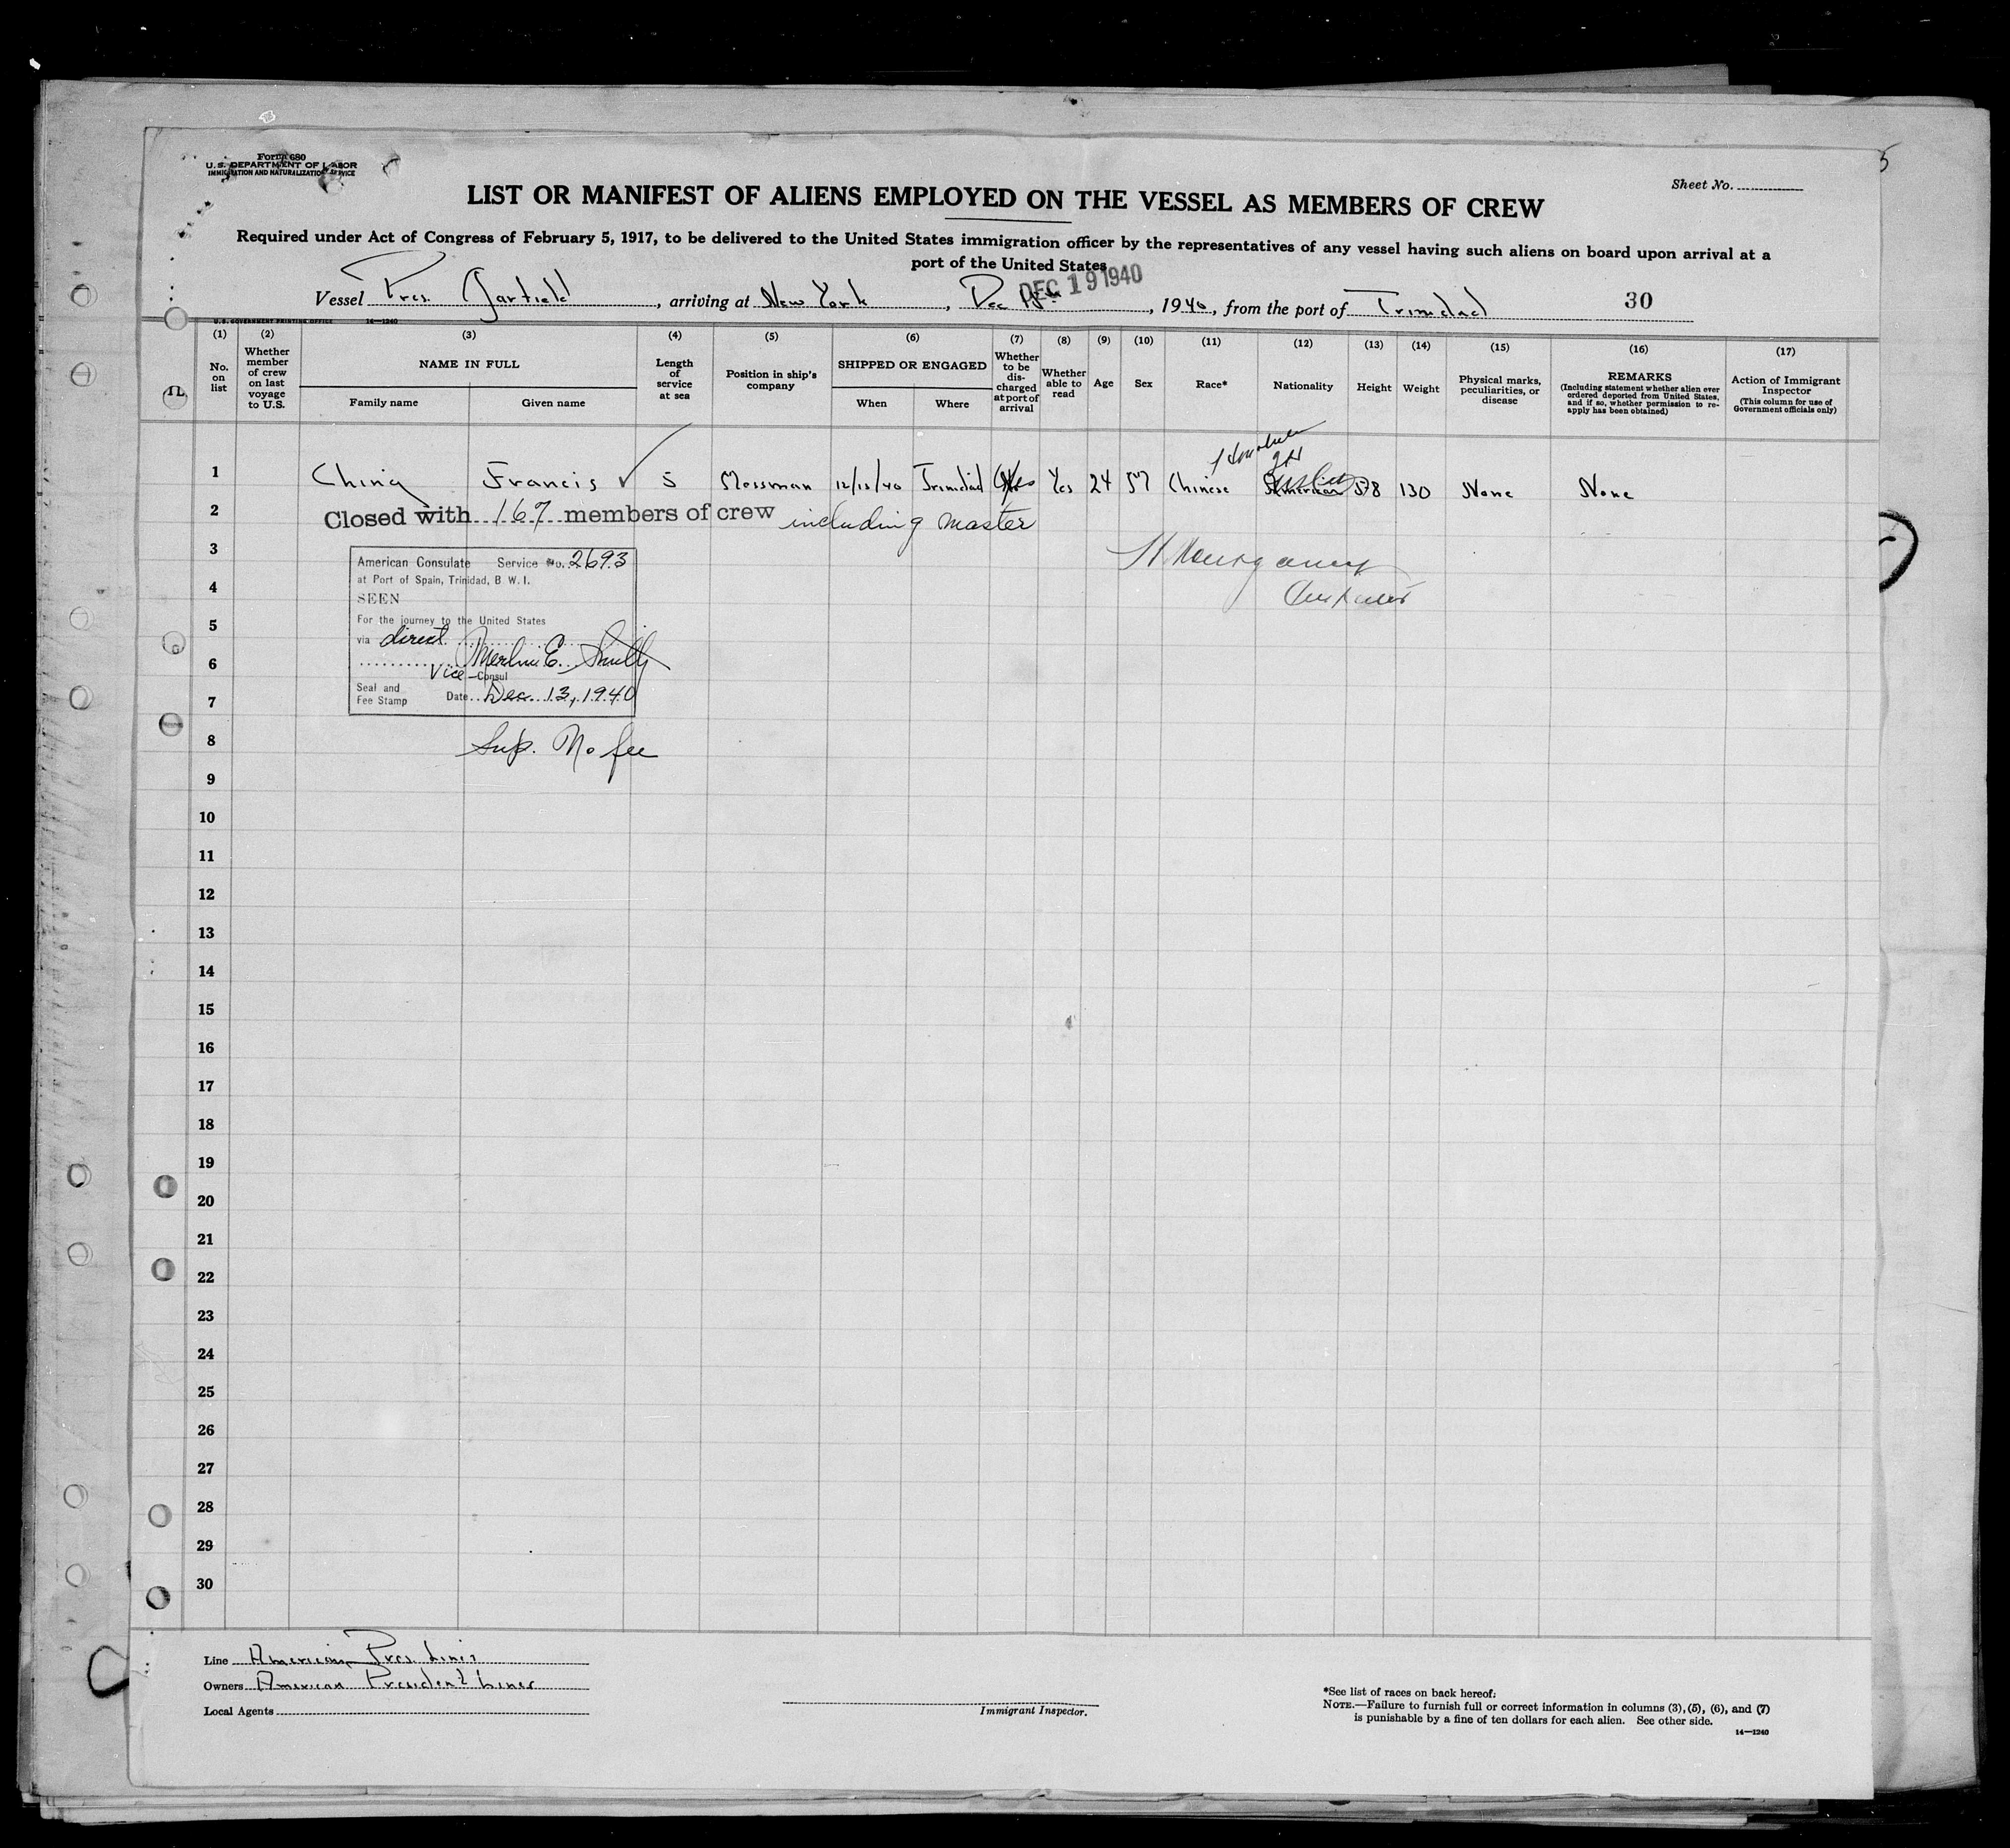 Form 680
U. S. DEPARTMENT OF LABOR
IMMIGRATION AND NATURALIZATION SERVICE
Sheet No.
LIST OR MANIFEST OF ALIENS EMPLOYED ON THE VESSEL AS MEMBERS OF CREW
Required under Act of Congress of February 5, 1917, to be delivered to the United States immigration officer by the representatives of any vessel having such aliens on board upon arrival at a
port of the United States
DEC 19 1940
Vessel Pres. Garfield, arriving at New York, Dec 18th, 1940, from the port of Trinidad 30
U. S. GOVERNMENT PRINTING OFFICE 14—1240
(1) (2) (3) (4) (5) (6) (7) (8) (9) (10) (11) (12) (13) (14) (15) (16) (17)
No. on list
Whether member of crew on last voyage to U.S.
NAME IN FULL
Family name
Given name
Length of service at sea
Position in ship's company
SHIPPED OR ENGAGED
When
Where
Whether to be discharged at port of arrival
Whether able to read
Age
Sex
Race*
Nationality
Height
Weight
Physical marks, peculiarities, or disease
REMARKS
(Including statement whether alien ever ordered deported from United States, and if so, whether permission to re-apply has been obtained)
Action of Immigrant Inspector
(This column for use of Government officials only)
1 Ching Francis 5 Messman 12/13/40 Trinidad Yes Yes 24 M Chinese American 5-8 130 None None
2 Closed with 167 members of crew including master
3
American Consulate Service No. 2693
at Port of Spain, Trinidad, B. W. I.
4
SEEN
5
For the journey to the United States
via direct
6
Merlin E. Smith
Vice-Consul
7
Seal and Fee Stamp Date Dec. 13, 1940
8
Sup. No fee
9
10
11
12
13
14
15
16
17
18
19
20
21
22
23
24
25
26
27
28
29
30
Line American Pres. Lines
Owners American President Lines
Local Agents
Immigrant Inspector.
*See list of races on back hereof:
NOTE.—Failure to furnish full or correct information in columns (3), (5), (6), and (7)
is punishable by a fine of ten dollars for each alien. See other side.
14—1240